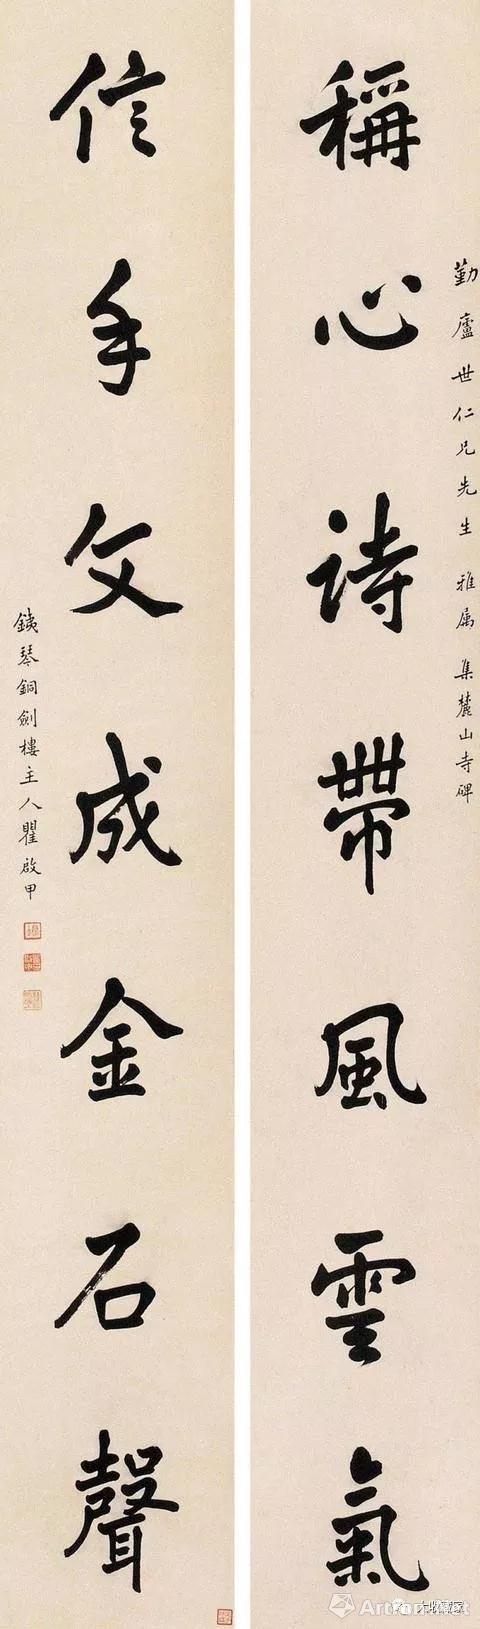 稱心詩帶風雲氣
勤廬世仁兄先生 雅属 集麓山寺碑
信手文成金石聲
鐵琴銅劍樓主人瞿啟甲
大收藏家
Artron.Net